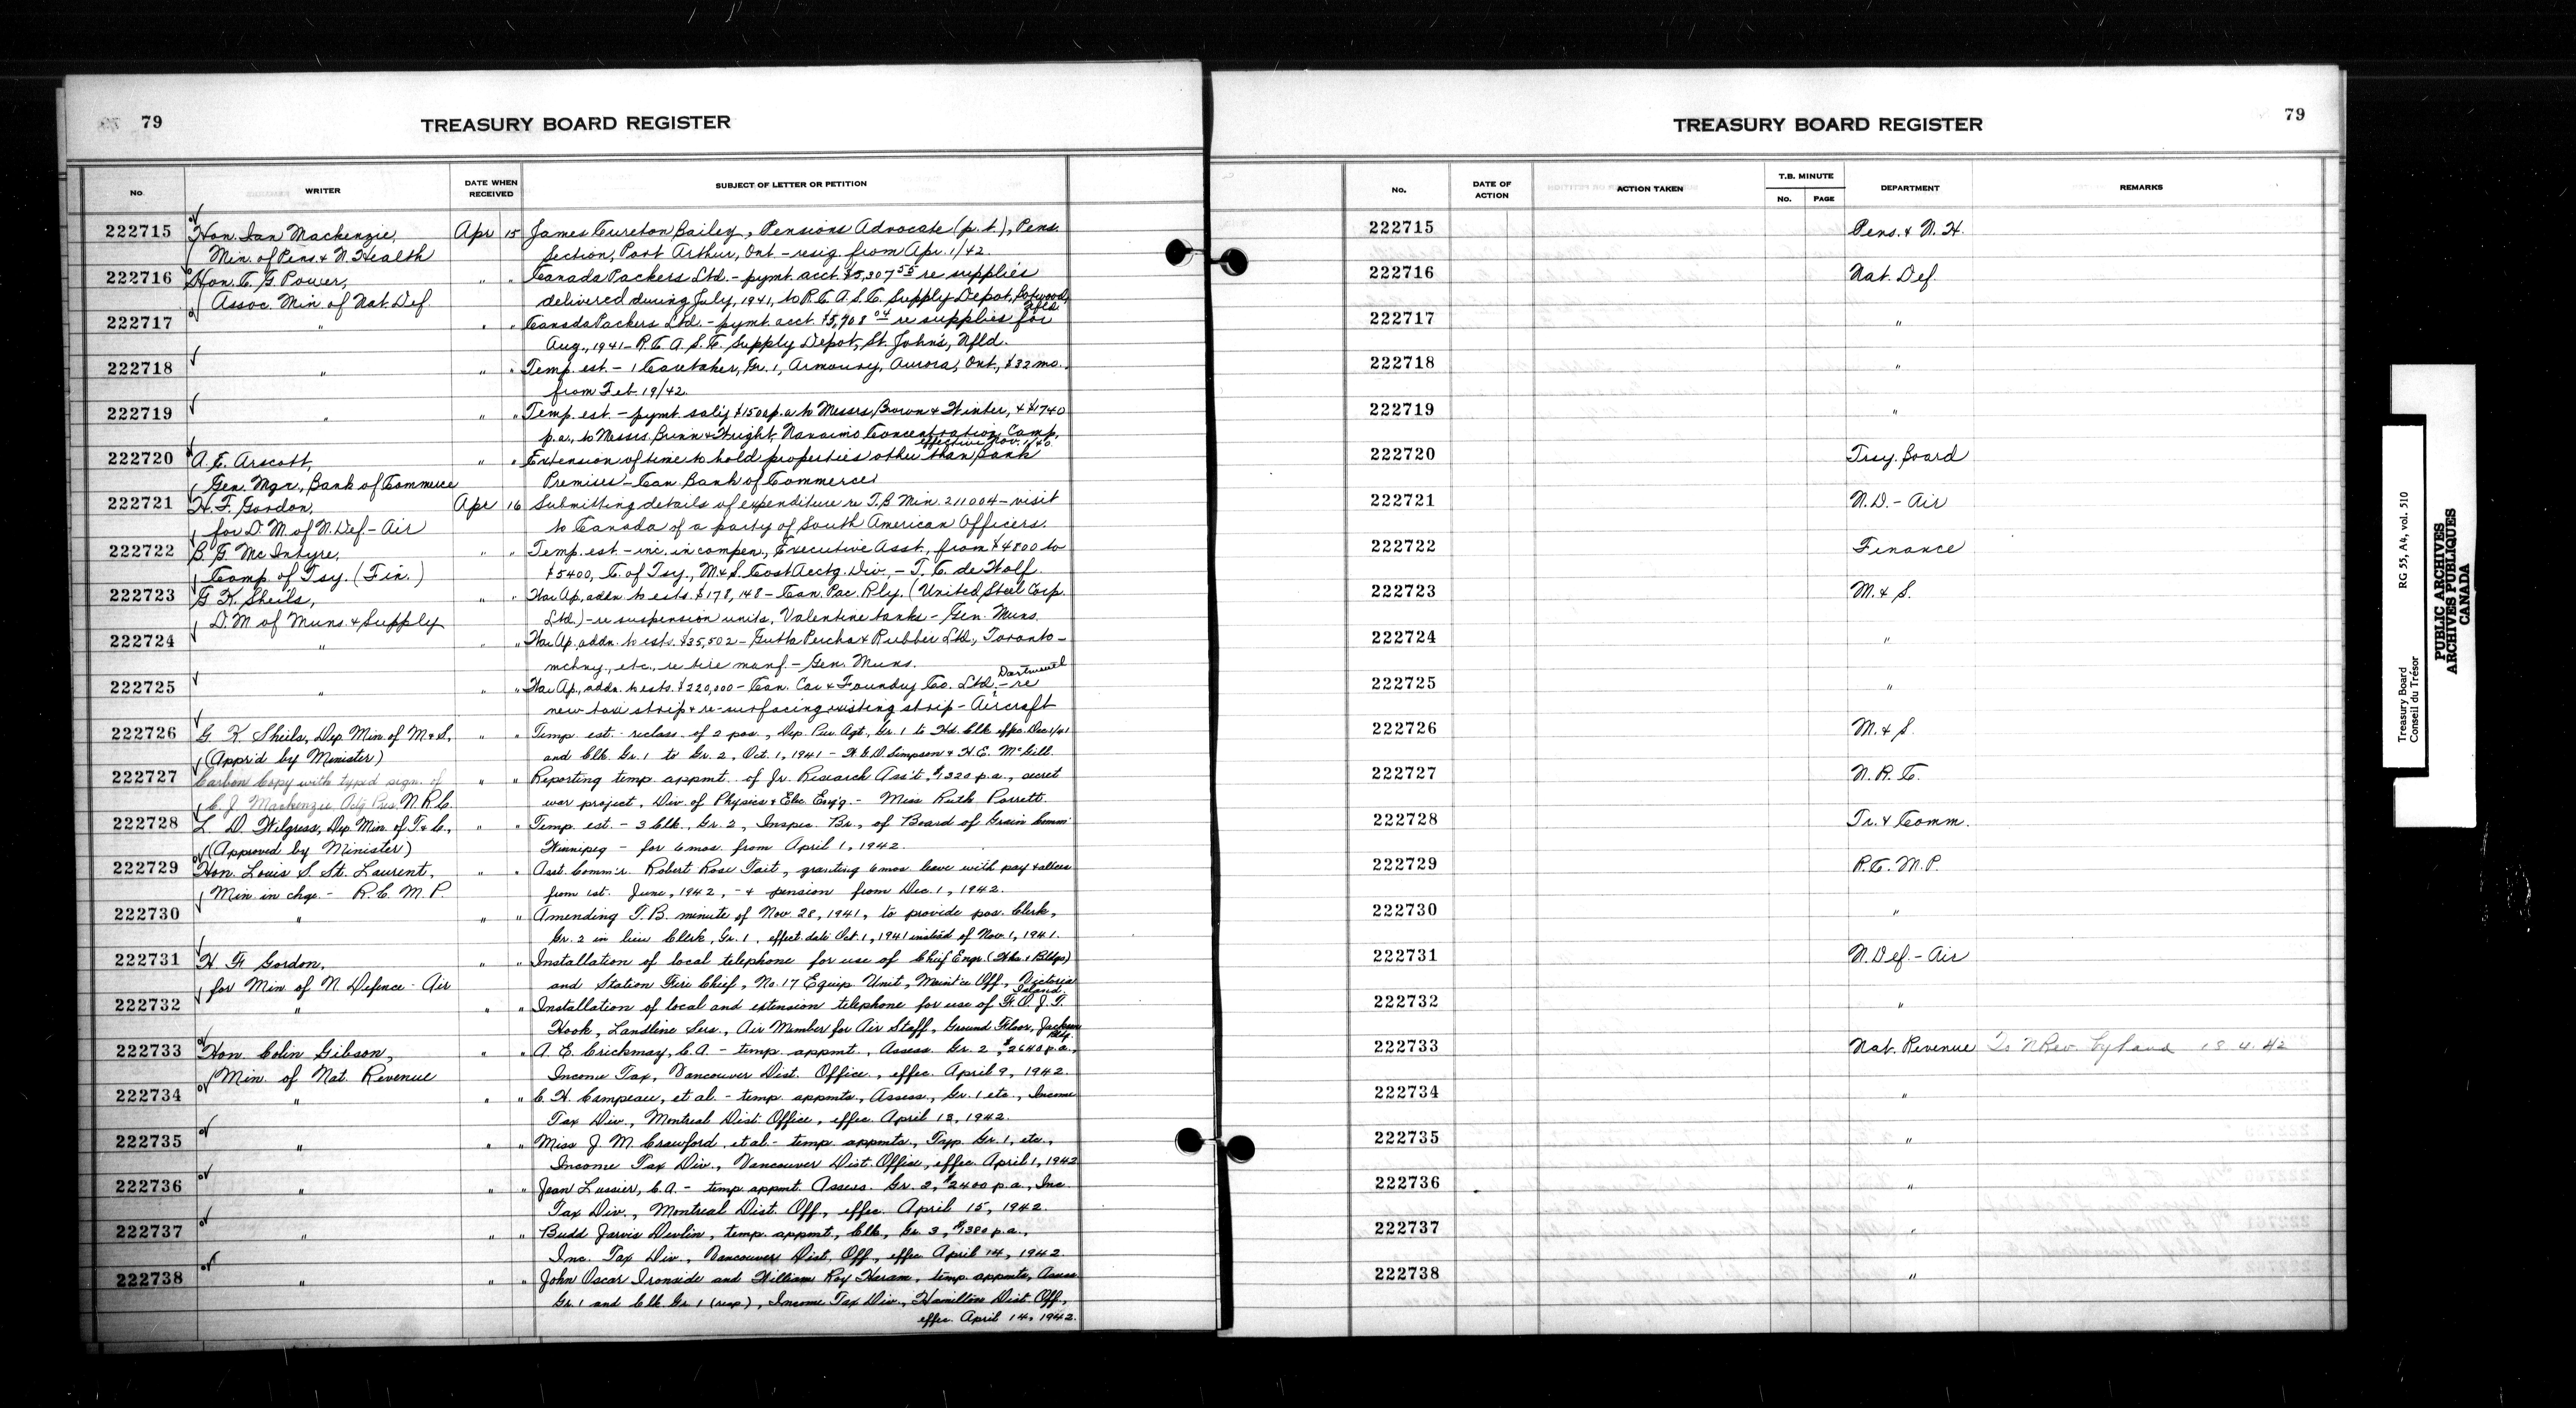 79
TREASURY BOARD REGISTER
No. WRITER DATE WHEN RECEIVED SUBJECT OF LETTER OR PETITION
222715 Hon. Ian Mackenzie, Apr 15 James Cureton Bailey, Pensions Advocate (p.t.), Pens.
Min. of Pens. & N. Health Section, Port Arthur, Ont - resig. from Apr. 1/42.
222716 Hon. C. G. Power, " " Canada Packers Ltd. - pymt. acct. $5,307.55 re supplies
Assoc. Min. of Nat. Def. delivered during July, 1941, to R.C.A.S.C. Supply Depot, Botwood, Nfld.
222717 " " " Canada Packers Ltd. - pymt. acct. $5,908.04 re supplies for
Aug., 1941 - R.C.A.S.C. Supply Depot, St. John's, Nfld.
222718 " " " Temp. est. - 1 Caretaker, Gr. 1, Armoury, Aurora, Ont., $32 mo.
from Feb. 19/42.
222719 " " " Temp. est. - pymt. salig $1500 p.a. to Messrs. Brown & Winter, & $1740
p.a., to Messrs. Bunn & Wright, Nanaimo Concentration Camp,
effective Nov. 1/40.
222720 A. E. Arscott, " " Extension of time to hold properties other than Bank
Gen. Mgr., Bank of Commerce Premises - Can. Bank of Commerce.
222721 H. F. Gordon, Apr 16 Submitting details of expenditure re T.B. Min. 211004 - visit
for D. M. of N. Def. - Air to Canada of a party of South American Officers.
222722 B. G. McIntyre, " " Temp. est. - inc. in compen., Executive Asst., from $4800 to
Comp. of Tsy. (Fin.) $5400, C. of Tsy., M. & S. Cost Acctg. Div., - T. C. de Wolf.
222723 G. K. Sheils, " " War Ap., addn. to ests. $178,148 - Can. Pac. Rly. (United Steel Corp.
D. M. of Muns. & Supply Ltd.) - re suspension units, Valentine tanks - Gen. Muns.
222724 " " " War Ap. addn. to ests. $35,502 - Gutta Percha & Rubber Ltd., Toronto -
mchny., etc., re tire manf. - Gen. Muns.
222725 " " " War Ap., addn. to ests. $220,000 - Can. Car & Foundry Co. Ltd. - re
new taxi strip & re-surfacing existing strip - Aircraft
222726 G. K. Sheils, Dep. Min. of M. & S., " " Temp. est. - reclass. of 2 pos., Dep. Pur. Agt., Gr. 1 to Hd. Clk. effec. Dec. 1/41
(Appr'd by Minister) and Clk. Gr. 1 to Gr. 2, Oct. 1, 1941 - Simpson & H. E. McGill.
222727 Carbon Copy with typed sign. of " " Reporting temp. appmt. of Jr. Research Ass't, $1320 p.a., secret
C. J. Mackenzie, Actg. Pres. N.R.C. war project, Div. of Physics & Elec. Eng'g. - Miss Ruth Parrett.
222728 L. D. Wilgress, Dep. Min. of T. & C., " " Temp. est. - 3 Clk., Gr. 2, Inspec. Br., of Board of Grain Comm'
(Approved by Minister) Winnipeg - for 6 mos. from April 1, 1942.
222729 Hon. Louis S. St. Laurent, " " Asst. Comm'r. Robert Rose Tait, granting 6 mos. leave with pay & allces
Min. in chge. - R.C.M.P. from 1st. June, 1942, - & pension from Dec. 1, 1942.
222730 " " " Amending T.B. minute of Nov. 28, 1941, to provide pos. Clerk,
Gr. 2 in lieu Clerk, Gr. 1, effect. date Oct. 1, 1941 instead of Nov. 1, 1941.
222731 H. F. Gordon, " " Installation of local telephone for use of Chief Engr. (Wks. & Bldgs)
for Min. of N. Defence - Air and Station Fire Chief, No. 17 Equip. Unit, Maint'ce Off., Victoria Island.
222732 " " " Installation of local and extension telephone for use of F. O. J. T.
Hook, Landline Sers., Air Member for Air Staff, Ground Floor, Jackson Bldg.
222733 Hon. Colin Gibson, " " A. E. Crickmay, C.A. - temp. appmt., Assess. Gr. 2, $2640 p.a.,
Min. of Nat. Revenue Income Tax, Vancouver Dist. Office, effec. April 9, 1942.
222734 " " " C. H. Campeau, et al. - temp. appmts., Assess., Gr. 1 etc., Income
Tax Div., Montreal Dist. Office, effec. April 13, 1942.
222735 " " " Miss J. M. Crawford, et al - temp. appmts., Typ. Gr. 1, etc.,
Income Tax Div., Vancouver Dist. Office, effec. April 1, 1942
222736 " " " Jean Lussier, C.A. - temp. appmt. Assess. Gr. 2, $2400 p.a., Inc.
Tax Div., Montreal Dist. Off., effec. April 15, 1942.
222737 " " " Budd Jarvis Devlin, temp. appmt., Clk., Gr. 3, $1380 p.a.,
Inc. Tax Div., Vancouver Dist. Off., effec. April 14, 1942.
222738 " " " John Oscar Ironside and William Roy Heram, temp. appmts, Assess
Gr. 1 and Clk. Gr. 1 (resp), Income Tax Div., Hamilton Dist. Off.,
effec. April 14, 1942.
79
TREASURY BOARD REGISTER
No. DATE OF ACTION ACTION TAKEN T.B. MINUTE No. PAGE DEPARTMENT REMARKS
222715 Pens. & N. H.
222716 Nat. Def.
222717 "
222718 "
222719 "
222720 Trsy. Board
222721 N.D. - Air
222722 Finance
222723 M. & S.
222724 "
222725 "
222726 M. & S.
222727 N. R. C.
222728 Tr. & Comm.
222729 R.C.M.P.
222730 "
222731 N. Def. - Air
222732 "
222733 Nat. Revenue To N Rev. by hand 18 4 42
222734 "
222735 "
222736 "
222737 "
222738 "
Treasury Board RG 55, A4, vol. 510
Conseil du Trésor
PUBLIC ARCHIVES
ARCHIVES PUBLIQUES
CANADA